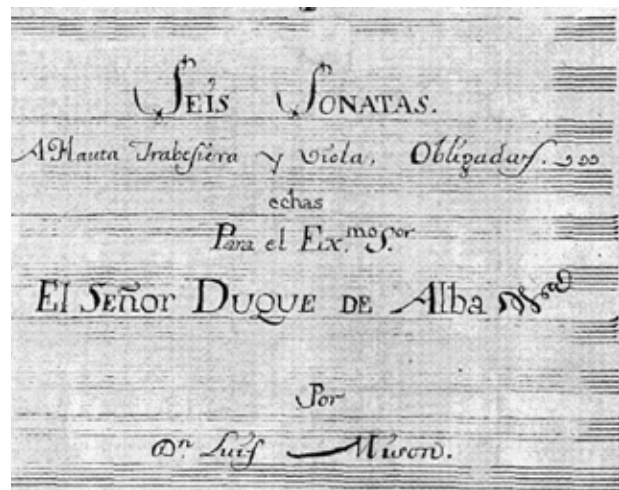 Seis Sonatas.
A Flauta Trabesiera y Viola, Obligadas.
echas
Para el Ex.mo S.or
El Señor Duque de Alba
Por
Dn. Luis Mison.